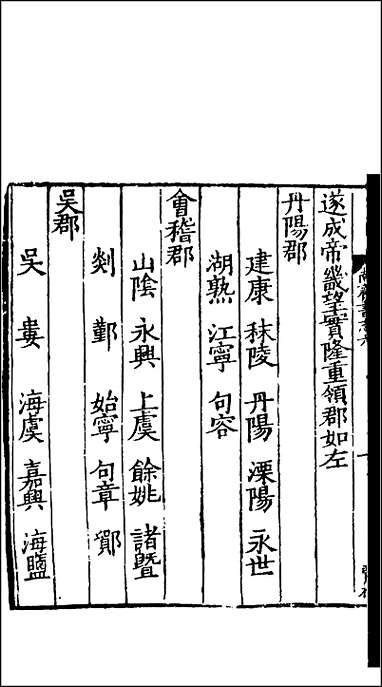 遂成帝畿望實隆重領郡如左
丹陽郡
建康 秣陵 丹陽 溧陽 永世
湖熟 江寧 句容
會稽郡
山陰 永興 上虞 餘姚 諸暨
剡 鄞 始寧 句章 鄮
吳郡
吳 婁 海虞 嘉興 海鹽